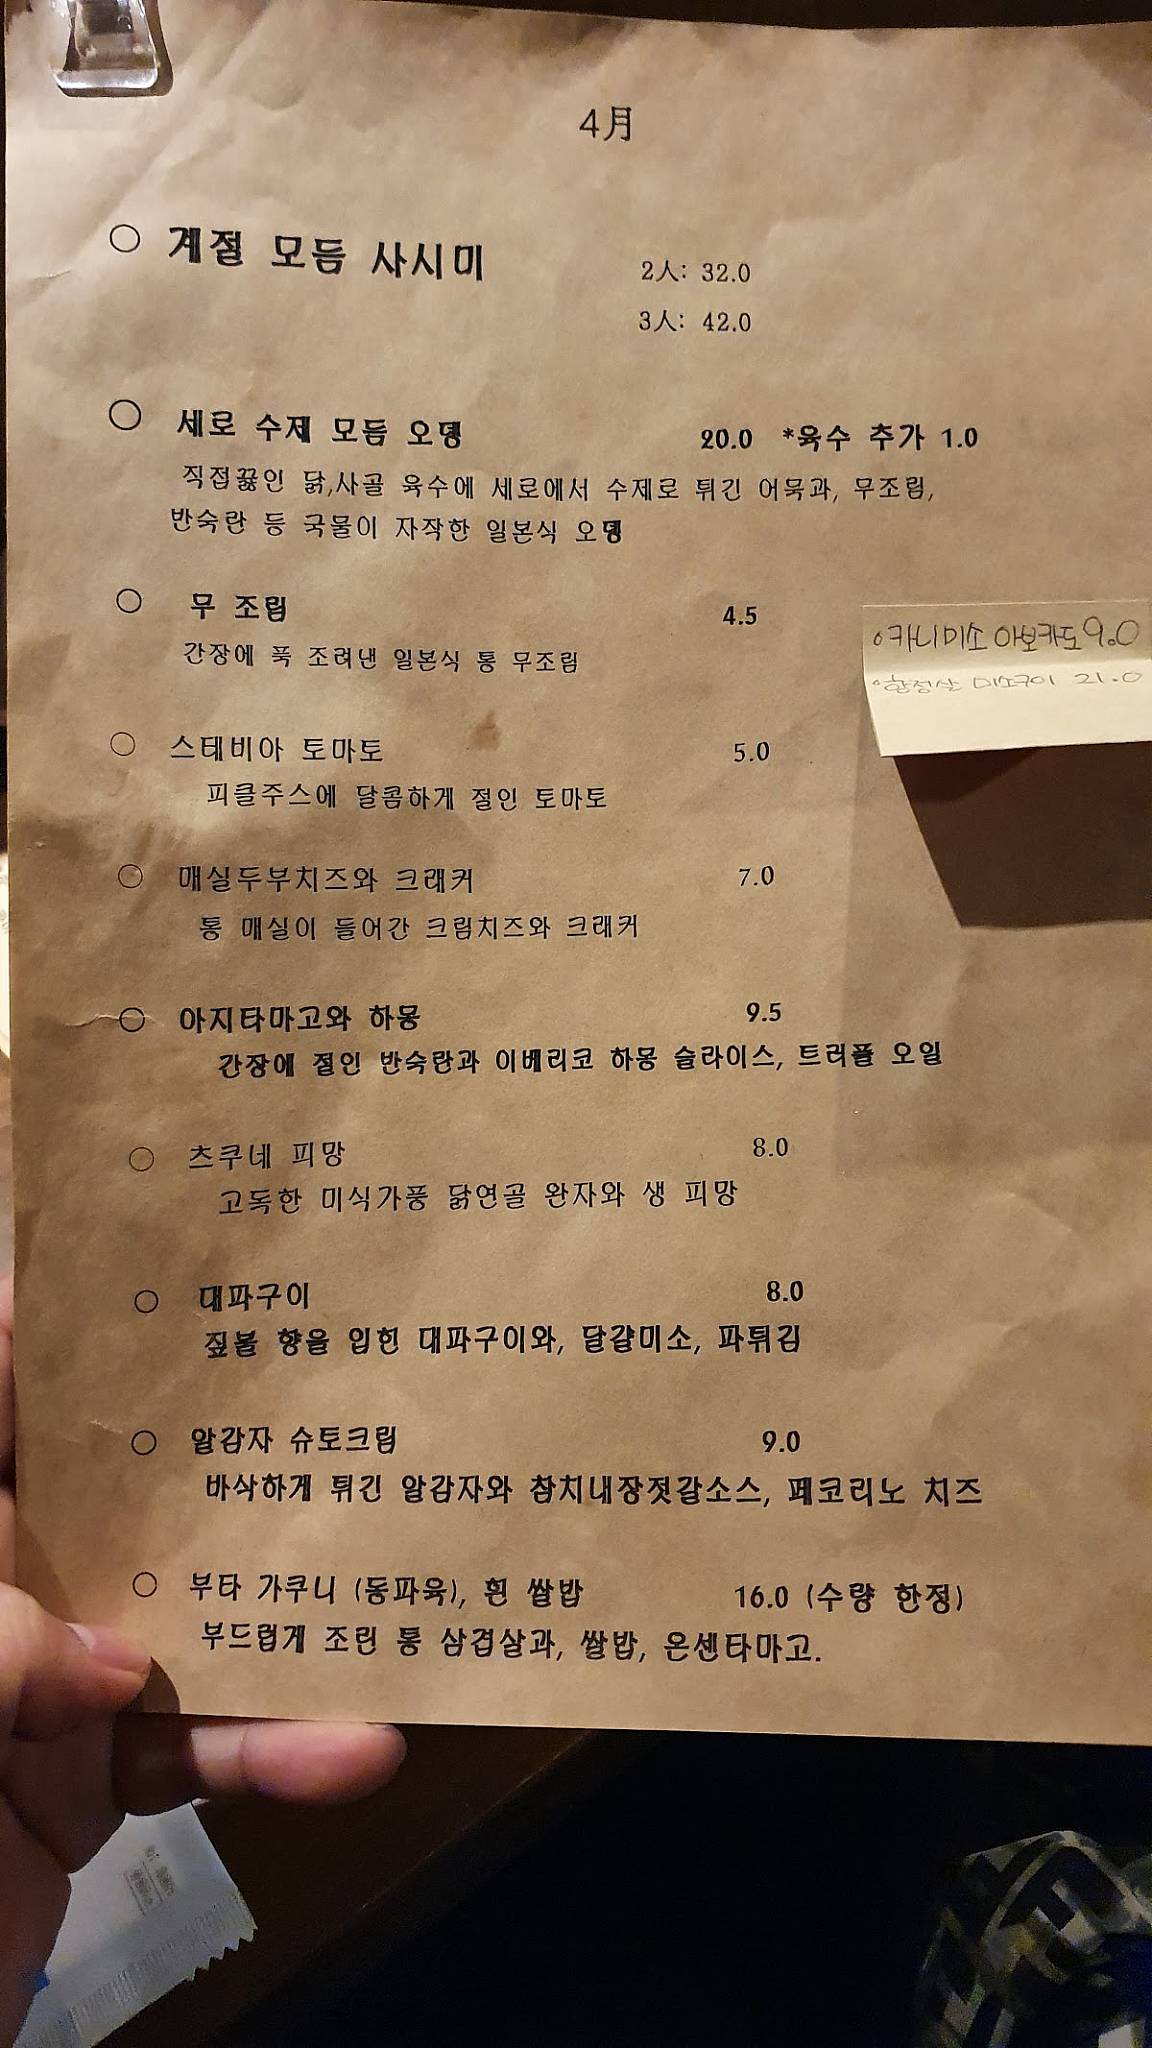 4月
○ 계절 모듬 사시미 2人: 32.0
3人: 42.0
○ 세로 수제 모듬 오뎅 20.0 *육수 추가 1.0
직접끓인 닭,사골 육수에 세로에서 수제로 튀긴 어묵과, 무조림,
반숙란 등 국물이 자작한 일본식 오뎅
○ 무 조림 4.5
간장에 푹 조려낸 일본식 통 무조림
◦카니미소 아보카도 9.0
◦항정살 미소구이 21.0
○ 스테비아 토마토 5.0
피클주스에 달콤하게 절인 토마토
○ 매실두부치즈와 크래커 7.0
통 매실이 들어간 크림치즈와 크래커
○ 아지타마고와 하몽 9.5
간장에 절인 반숙란과 이베리코 하몽 슬라이스, 트러플 오일
○ 츠쿠네 피망 8.0
고독한 미식가풍 닭연골 완자와 생 피망
○ 대파구이 8.0
짚불 향을 입힌 대파구이와, 달걀미소, 파튀김
○ 알감자 슈토크림 9.0
바삭하게 튀긴 알감자와 참치내장젓갈소스, 페코리노 치즈
○ 부타 가쿠니 (동파육), 흰 쌀밥 16.0 (수량 한정)
부드럽게 조린 통 삼겹살과, 쌀밥, 온센타마고.